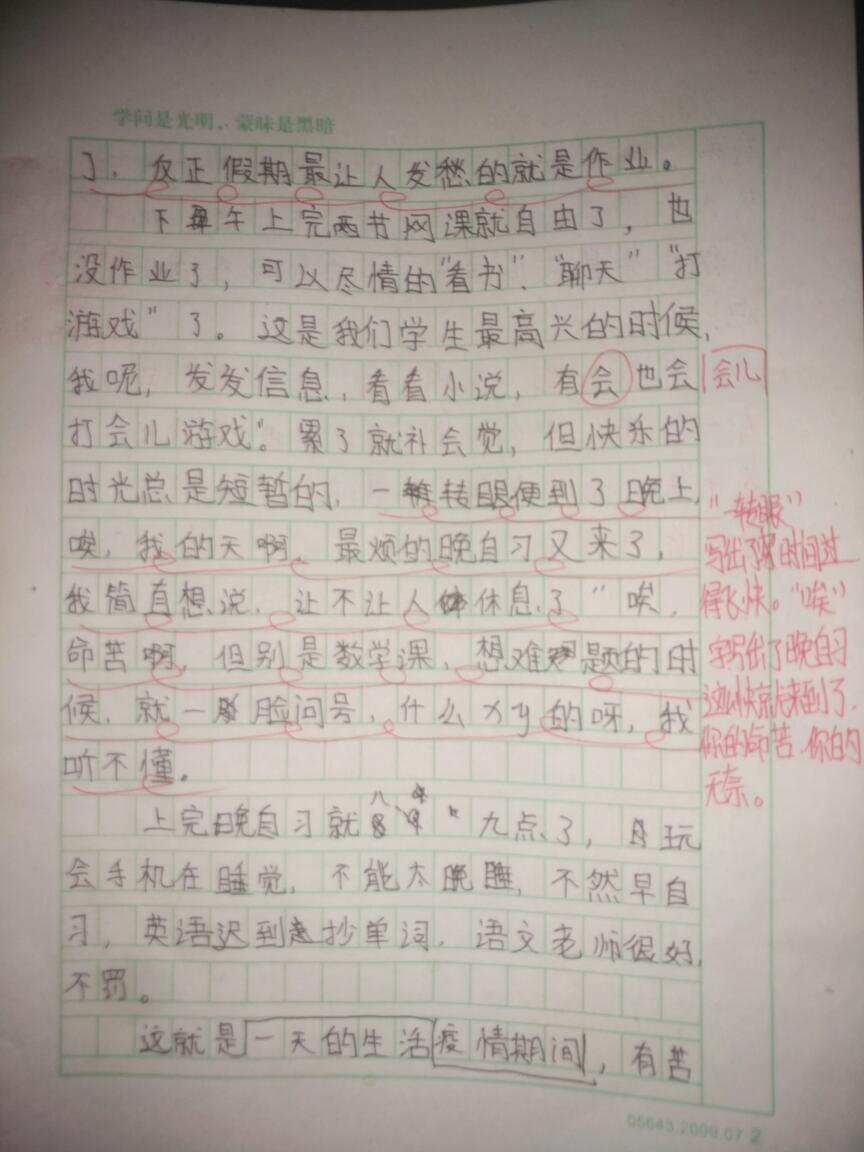 学问是光明，蒙昧是黑暗
了．反正假期最让人发愁的就是作业。
下午上完两节网课就自由了，也
没作业了，可以尽情的"看书"、"聊天""打
游戏"了。这是我们学生最高兴的时候，
我呢，发发信息，看看小说，有会也会
会儿
打会儿游戏"。累了就补会觉，但快乐的
时光总是短暂的，一转眼便到了晚上，
"一转眼"
唉，我的天啊，最烦的晚自习又来了，
写出了时间过
我简直想说，让不让人休息了"唉，
得飞快。"唉"
命苦啊，但别是数学课，想难题的时
字写出了晚自习
候，就一脸问号，什么xy的呀，我
这么快就来到了，
你的命苦，你的
听不懂。
无奈。
上完晚自习就八九点了，玩
会手机在睡觉，不能太晚睡，不然早自
习，英语迟到抄单词，语文老师很好，
不罚。
这就是一天的生活疫情期间，有苦
05643.2009.07 2